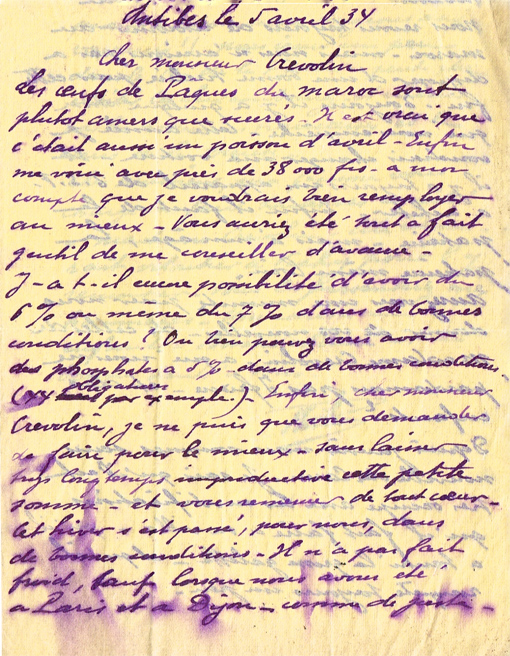 Antibes le 5 avril 34
Cher monsieur Crevolin
Les œufs de Pâques du maroc sont
plutot amers que sucrés - Il est vrai que
c'était aussi un poisson d'avril - Enfin
me voici avec près de 38000 frs - a mon
compte que je voudrais bien employer
au mieux - Vous auriez été tout a fait
gentil de me conseiller d'avance -
Y-a-t-il encore possibilité d'avoir du
6% ou même du 7% dans de bonnes
conditions ? Ou bien pouvez vous avoir
des phosphates a 5% - dans de bonnes conditions.
( obligations par exemple.) - Enfin, cher monsieur
Crevolin, je ne puis que vous demander
de faire pour le mieux - sans laisser
trop longtemps improductive cette petite
somme - et vous remercier de tout cœur -
Cet hiver s'est passé, pour nous, dans
de bonnes conditions - Il n'a pas fait
froid, sauf lorsque nous avons été
a Paris et a Dijon - comme de juste -